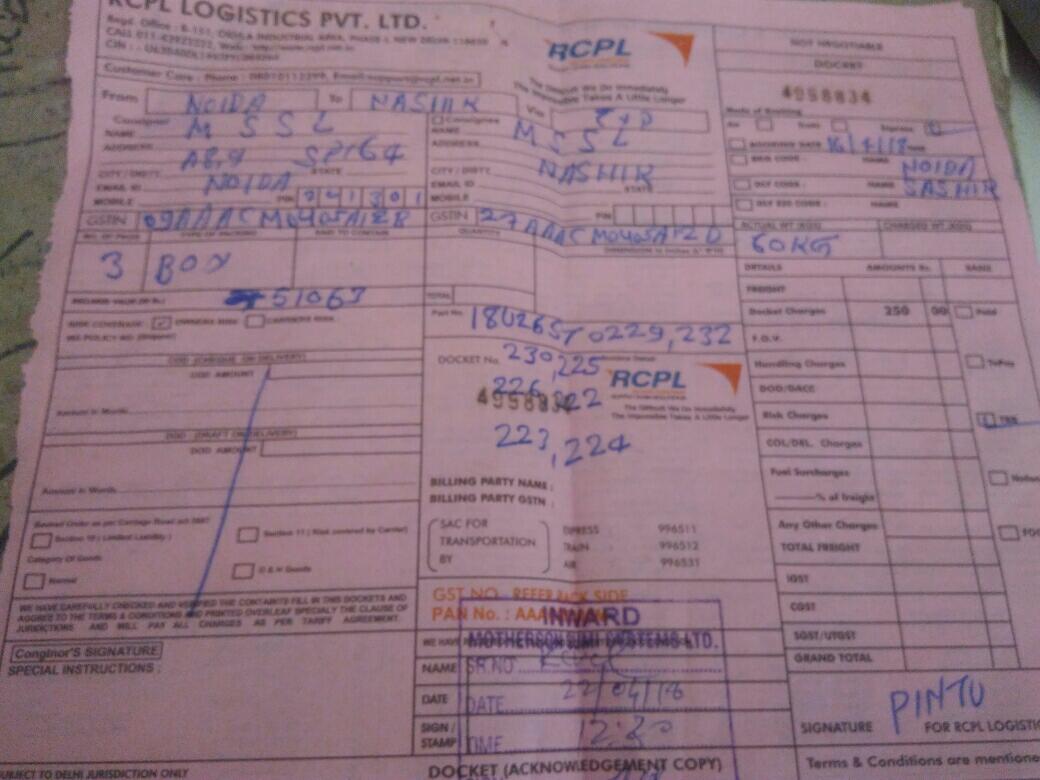 RCPL LOGISTICS PVT. LTD.
CALL 011-42921222, Web:
Customer Care : Phone : 08010112299, Email:support@rcpl.net.in
RCPL
The Difficult We Do Immediately
The Impossible Takes A Little Longer
NOT NEGOTIABLE
DOCKET
4958834
Mode of Booking
Air
Train
Express
From NOIDA To NASHIK Via Exp
Consignor
NAME MSSL
ADDRESS A8,9 SP164
CITY/DISTT. NOIDA STATE
EMAIL ID
MOBILE PIN 201301
GSTIN 09AAACM0405A1Z8
Consignee
NAME MSSL
ADDRESS
CITY/DISTT. NASHIK STATE
EMAIL ID
MOBILE PIN
GSTIN 27AAACM0405A1ZD
BOOKING DATE 16/4/18
ORG CODE : NAME NOIDA
DLY CODE : NAME NASHIK
DLY ESS CODE : NAME
ACTUAL WT.(KGS) CHARGED WT.(KGS)
60KG
NO. OF PKGS TYPE OF PACKING SAID TO CONTAIN QUANTITY
3 BOX
51063
TOTAL
RISK COVERAGE OWNERS RISK CARRIERS RISK
COD (CHEQUE ON DELIVERY)
COD AMOUNT
Amount in Words
DOD (DRAFT ON DELIVERY)
DOD AMOUNT
Amount in Words
Section 10 (Limited Liability)
Section 11 (Risk covered by Carrier)
Category Of Goods
Normal
O & H Goods
WE HAVE CAREFULLY CHECKED AND VERIFIED THE CONTAINTS FILL IN THIS DOCKETS AND
AGGRED TO THE TERMS & CONDITIONS AND PRINTED OVERLEAF SPECIALY THE CLAUSE OF
JURISDICTIONS AND WILL PAY ALL CHARGES AS PER TARIFF AGREEMENT.
Conginor'S SIGNATURE
SPECIAL INSTRUCTIONS :
180265T0229,232
DOCKET No. 230,225
226,222
4958834
223,224
RCPL
The Difficult We Do Immediately
The Impossible Takes A Little Longer
BILLING PARTY NAME :
BILLING PARTY GSTN :
SAC FOR
TRANSPORTATION
BY
EXPRESS : 996511
TRAIN : 996512
AIR : 996531
GST NO. REFER BACK SIDE
PAN No. :
INWARD
MOTHERSON SUMI SYSTEMS LTD.
WE HAVE
NAME SR.NO
DATE DATE 22/04/18
SIGN / STAMP TIME 2:30
DOCKET (ACKNOWLEDGEMENT COPY)
DETAILS AMOUNTS Rs. BASIS
FREIGHT
Docket Charges 250 00 Paid
F.O.V.
Handling Charges ToPay
DOD/DACC
Risk Charges TBB
COL/DEL. Charges
Fuel Surcharges
% of freight
Any Other Charges
TOTAL FREIGHT
IGST
CGST
SGST/UTGST
GRAND TOTAL
PINTU
SIGNATURE FOR RCPL LOGISTI
Terms & Conditions are mentione
SUBJECT TO DELHI JURISDICTION ONLY